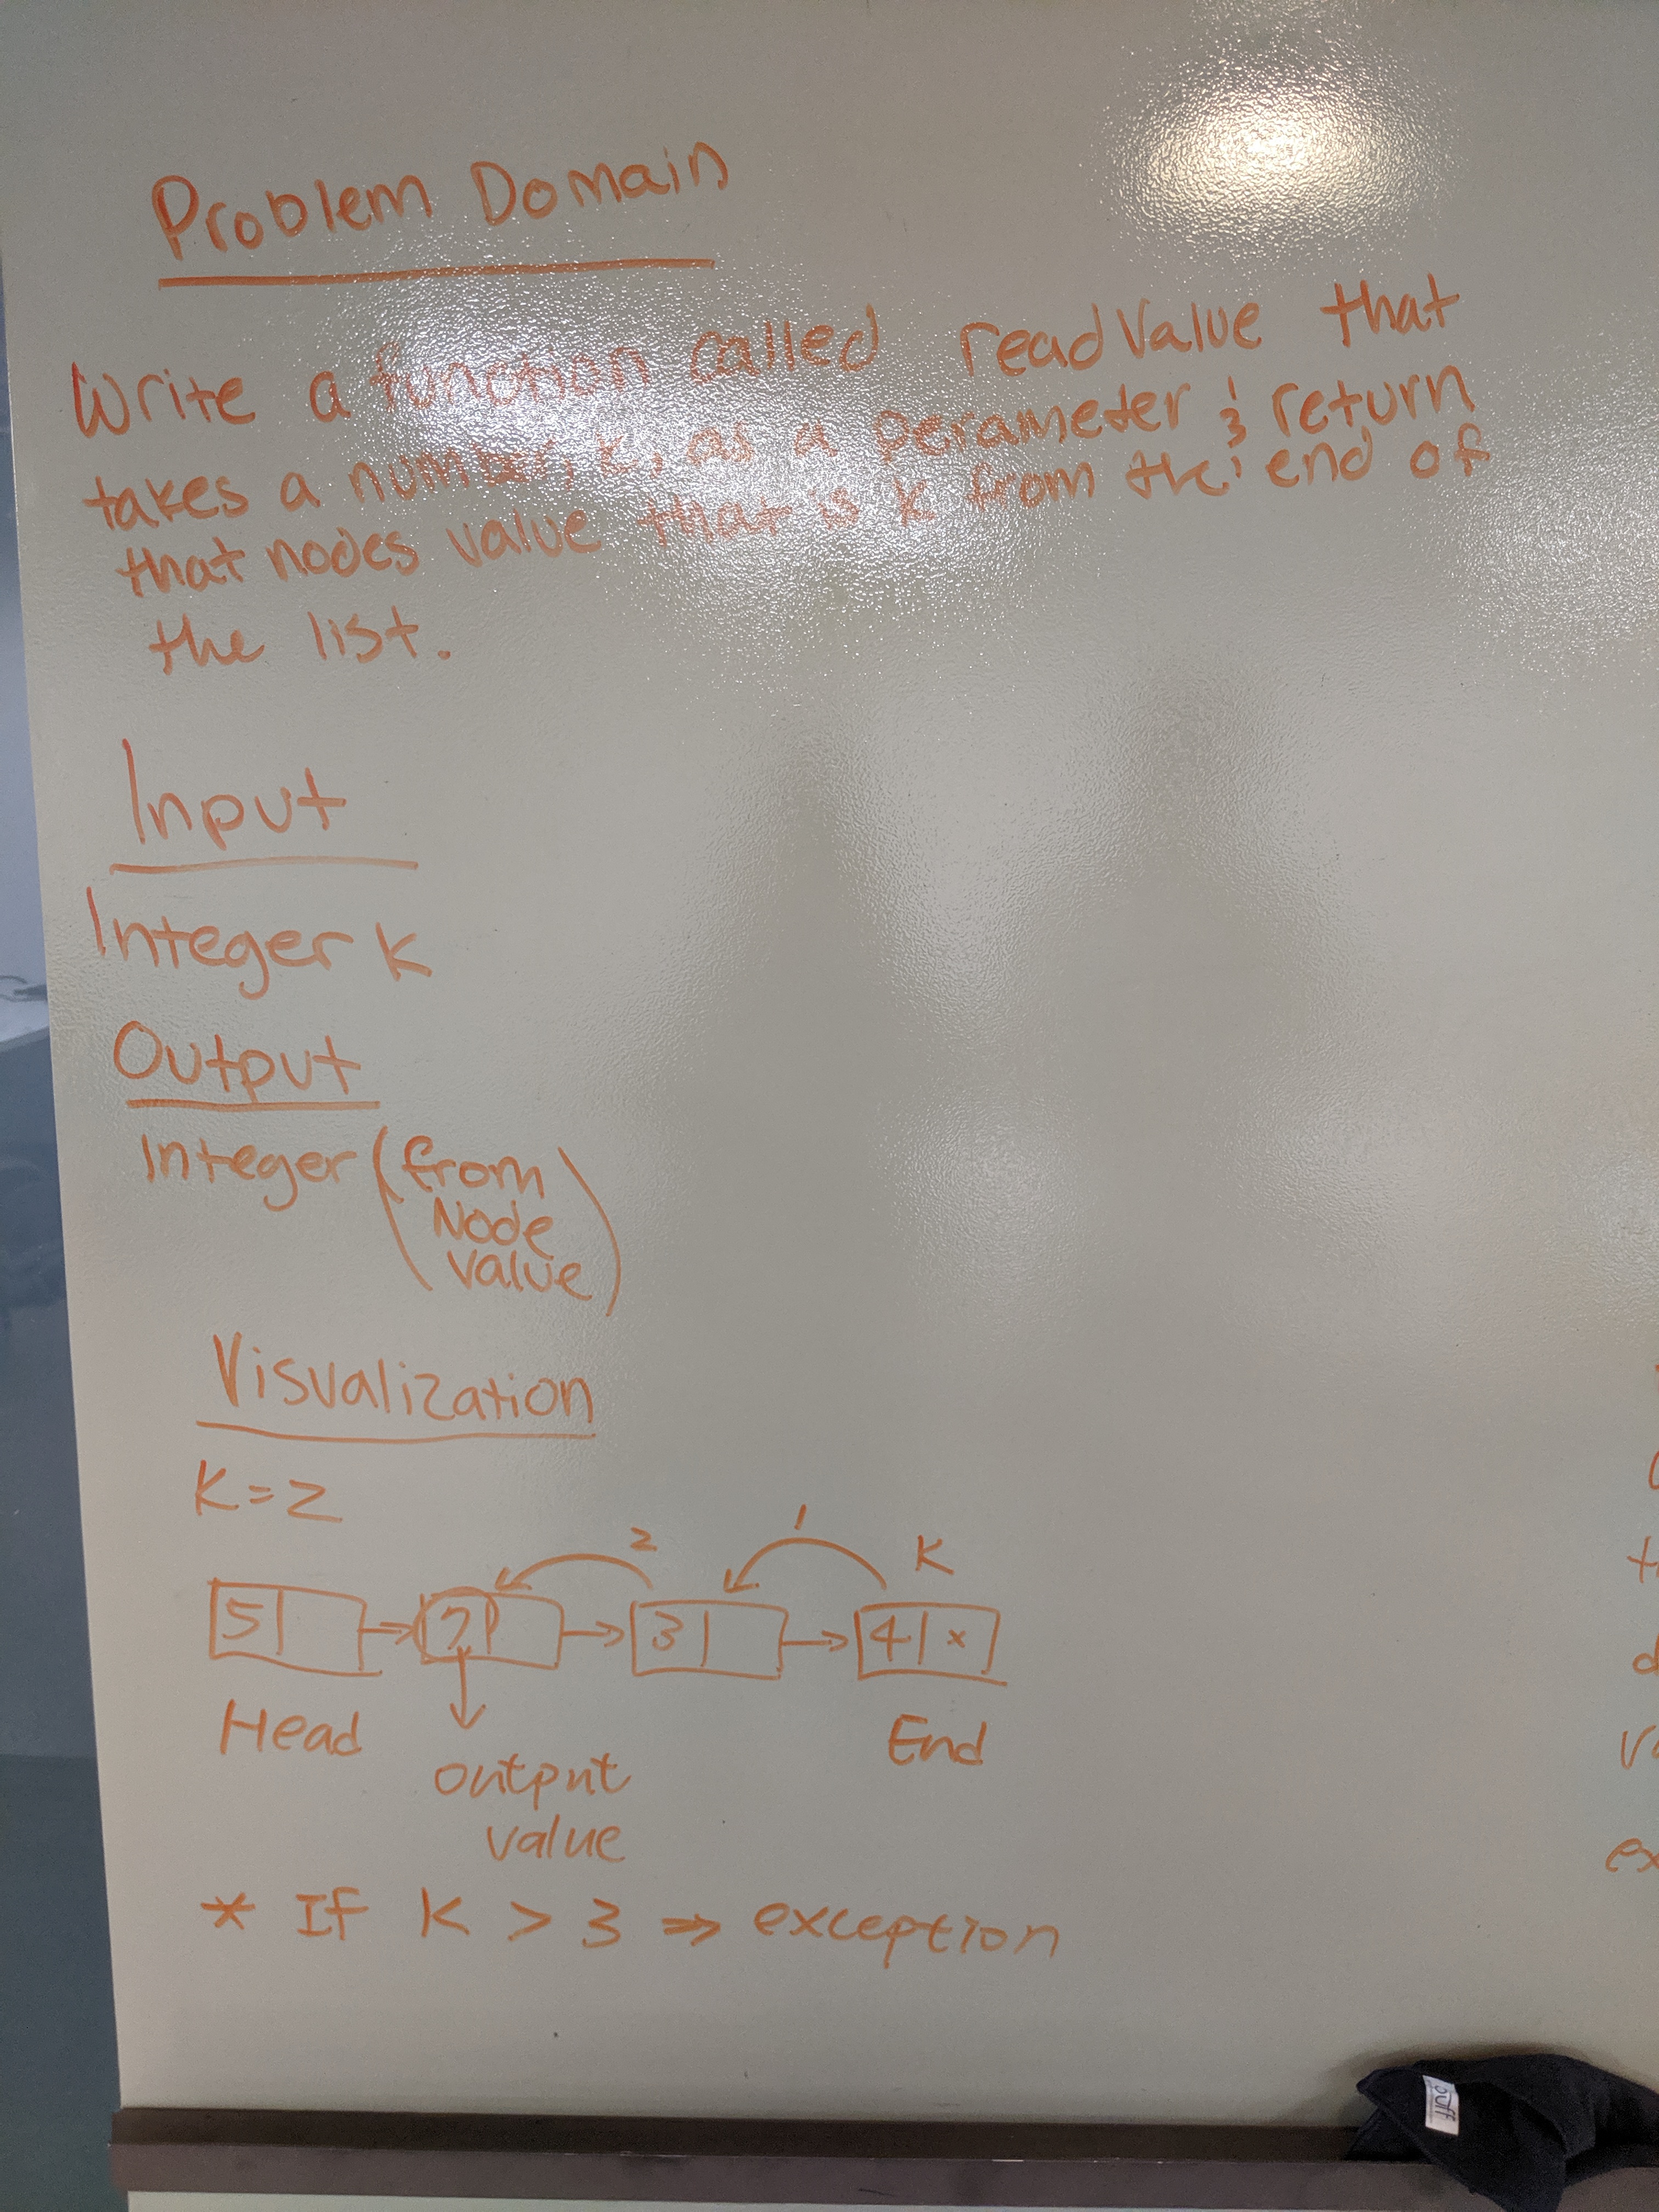 Problem Domain
Write a function called readValue that
takes a number, k, as a perameter & return
that nodes value that is k from the end of
the list.
Input
Integer k
Output
Integer (from
Node
value)
Visualization
K=2
2 1 K
5 7 3 4 x
Head End
output
value
* If K > 3 ⇒ exception
buff